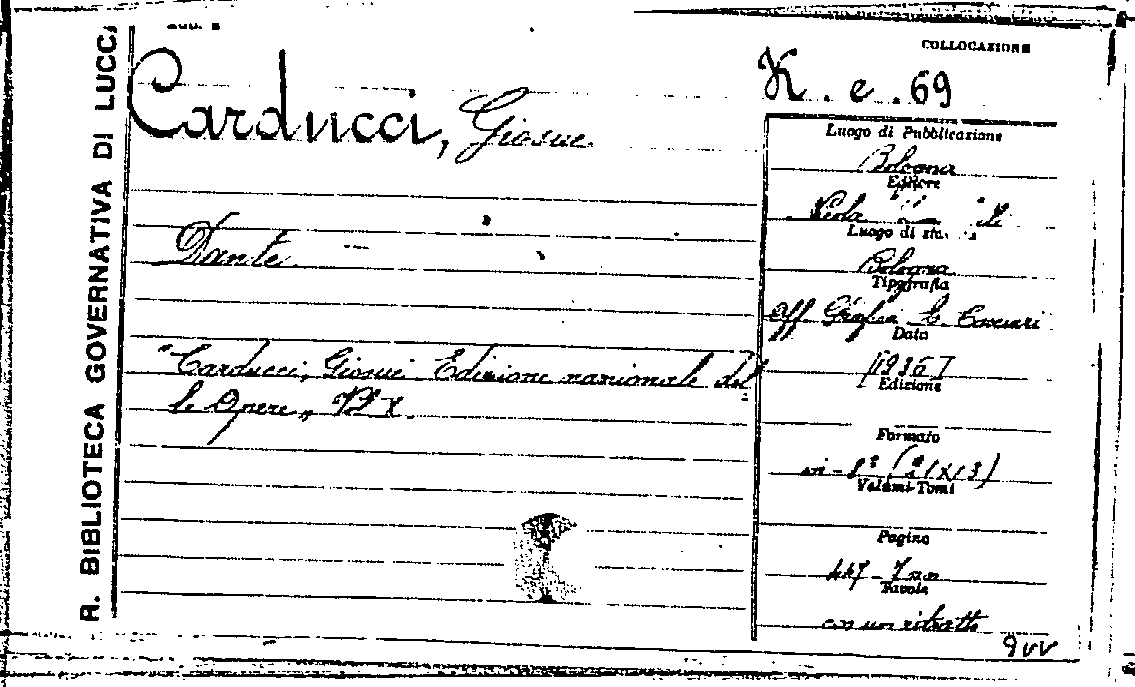 R. BIBLIOTECA GOVERNATIVA DI LUCCA
Mod. 2
COLLOCAZIONE
K. e. 69
Carducci, Giosue
Dante
"Carducci, Giosuè. Edizione nazionale del
le Opere", Vol X.
Luogo di Pubblicazione
Bologna
Editore
Luogo di
Bologna
Tipografia
Off. Grafica
Data
[1936]
Edizione
Formato
in-8°
Volumi-Tomi
Pagine
447-7
Tavole
con un ritratto